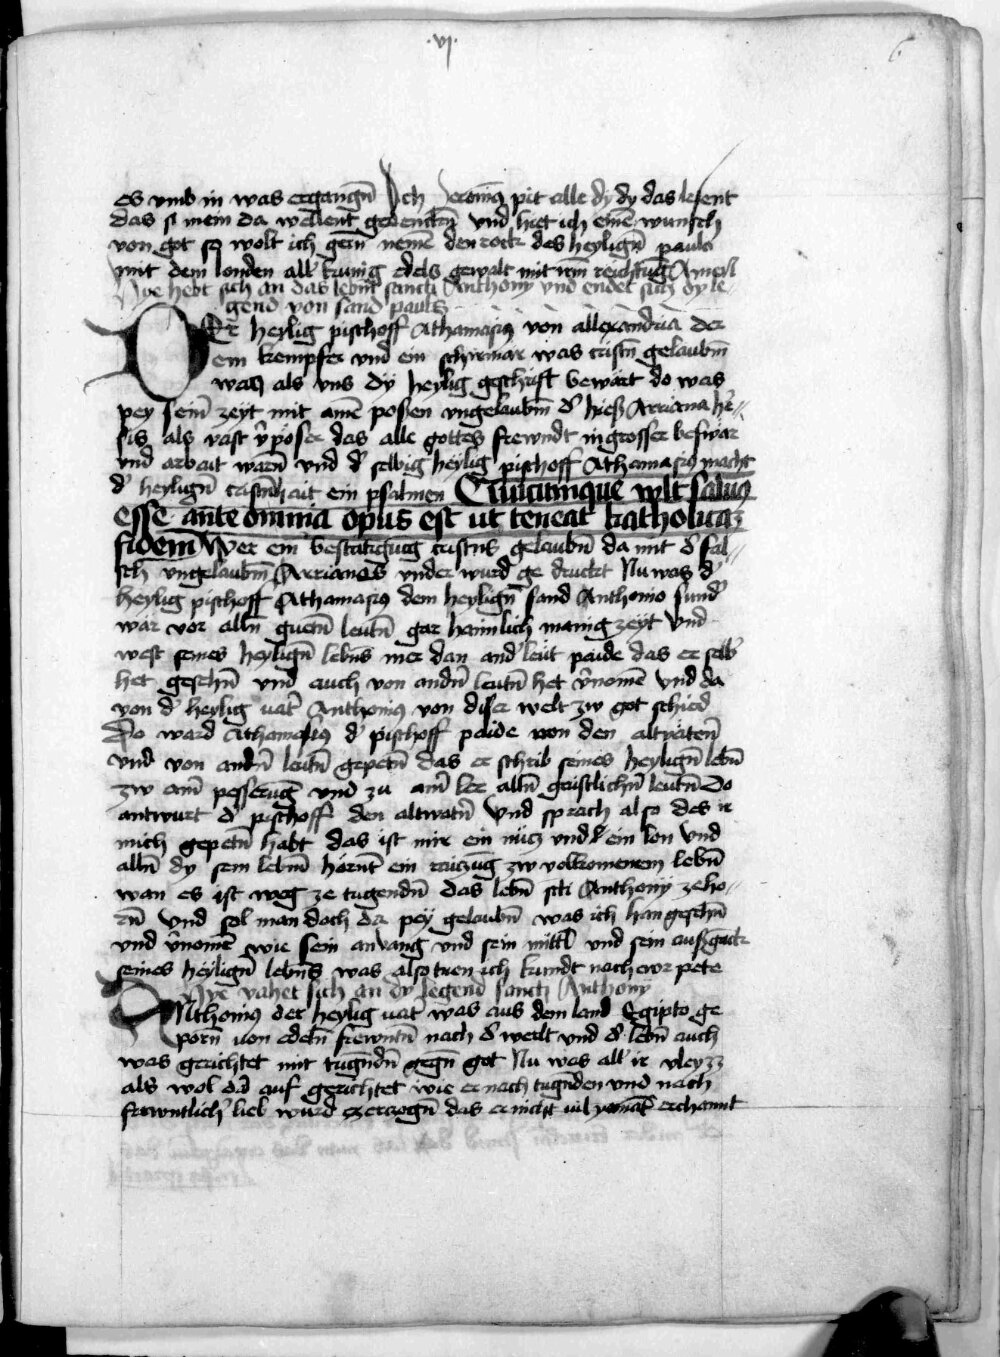 ·vj·
6
es vmb in was ergangn̄ Ich Jeronimꝰ pit alle dy dy das lesent
das si mein da wellent gedenckn̄ vnd hiet ich einē wunsch
von got so wolt ich gern nemē den rock des heylign̄ pauls
mit dem londen all kunig edels gewalt mit irm̄ reichtūg Amen
Hye hebt sich an das lebn̄ sancti Anthony vnd endet sich dy le-
gend von sand pauls
DEr heylig pischoff Athanasiꝰ von allexandria der
ein kempfer vnd ein schirmar was cristn̄ gelaubn̄
wan als vns dÿ heylig geschrift bewärt do was
pey sein̄ zeyt mit ainē posen vngelaubn̄ d' hieß Arriana her-
sis als vast v̄pöser das alle gottes frewndt in grosser beswär
vnd arbait warn̄ vnd d' selbig heylig pischoff Athanasiꝰ macht
d' heylign̄ cristn̄hait ein psalmen Quicumque vult saluꝰ
esse ante omnia opus est ut teneat katholicaz
fidem Wer ein bestätigūg cristns gelaubn̄ da mit d' fal-
sch vngelaubn̄ Arrianes vnder wurd ge druckt Nu was d'
heylig pischoff Athanasiꝰ dem heylign̄ sand Anthonio sund'
wär vor alln̄ guetn̄ leutn̄ gar haimlich manig zeyt vnd
west seines heylign̄ lebn̄s mer dan and' leut paide das er selb
het gesehn̄ vnd auch von andn̄ leutn̄ het v̄nomē vnd da
von d' heylig vat' Anthoniꝰ von diser welt zw got schied
Do ward Athanasiꝰ d' pischoff paide von den altvätern̄
vnd von andn̄ leutn̄ gepetn̄ das er schrib seines heylign̄ lebn̄
zw ain' pesserūg vnd zu ain' ler alln̄ geistlichn̄ leutn̄ Do
antwurt d' pischoff den altvatn̄ vnd sprach also des ir
mich gepetn̄ habt das ist mir ein nücz vnd ein lon vnd
alln̄ dy sein lebn̄ hörnt ein raiczūg zw volkomenem lebn̄
wan es ist weg ze tugendn̄ das lebn̄ scti Anthony zeho-
rn̄ vnd sol man doch da peÿ gelaubn̄ was ich han gesehn̄
vnd v̄nomē wie sein anvang vnd sein mittl vnd sein außgāck
seines heÿlign̄ lebn̄s was also tuen ich kundt nach ewr pete
Hye vahet sich an dy legend sancti Anthony
ANthoniꝰ der heylig vat' was aus dem land Egipto ge
porn̄ von edeln̄ frewntn̄ nach d' welt vnd d' lebn̄ auch
was gerichtet mit tugn̄dn̄ gegn̄ got Nu was all ir vleyzz
als wol dā auf gerichtet wie er nach tugn̄den vnd nach
frewntlich' lieb wurd erzogn̄ das er nicht vil yemāt erchannt